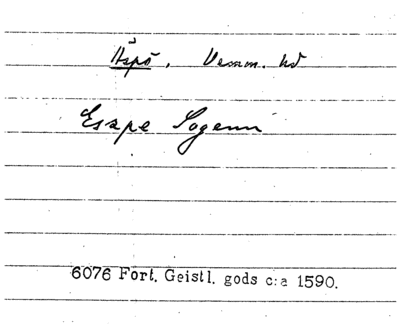 Äspö, Vemm. hd
Esspe Sogenn
6076 Fort. Geistl. gods c:a 1590.